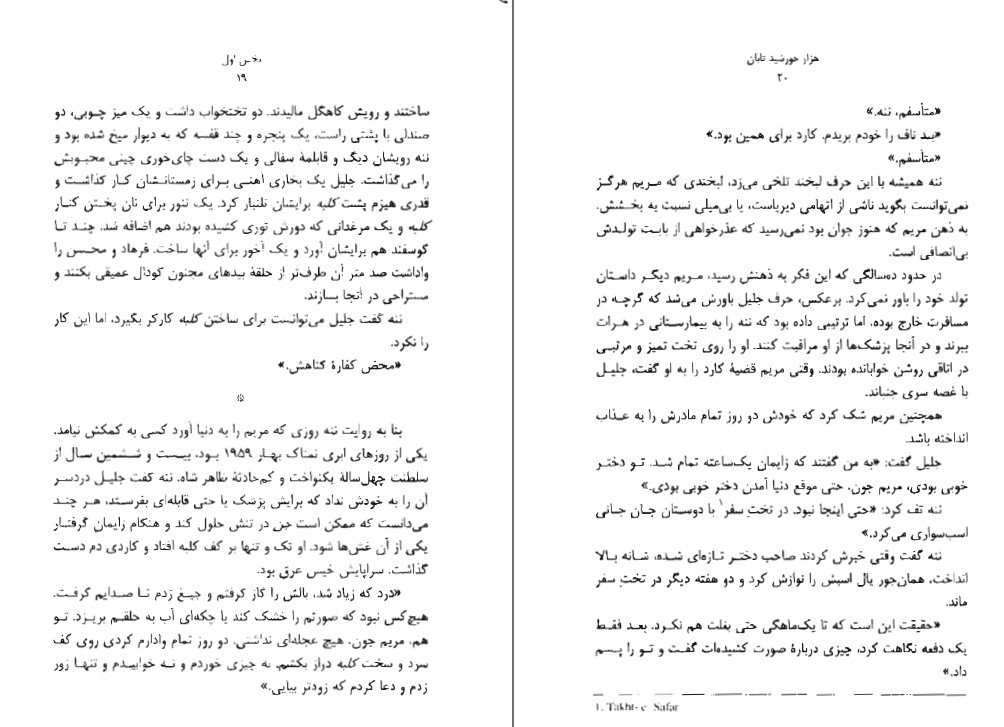 بخش اول
۱۹
ساختند و رویش کاهگل مالیدند. دو تختخواب داشت و یک میز چوبی، دو
صندلی با پشتی راست، یک پنجره و چند قفسه که به دیوار میخ شده بود و
ننه رویشان دیگ و قابلمهٔ سفالی و یک دست چای‌خوری چینی محبوبش
را می‌گذاشت. جلیل یک بخاری آهنی برای زمستانشان کار گذاشت و
قدری هیزم پشت کلبه برایشان تلنبار کرد. یک تنور برای نان پختن کنار
کلبه و یک مرغدانی که دورش توری کشیده بودند هم اضافه شد. چند تا
گوسفند هم برایشان آورد و یک آخور برای آنها ساخت. فرهاد و محسن را
واداشت صد متر آن طرف‌تر از حلقهٔ بیدهای مجنون گودال عمیقی بکنند و
مستراحی در آنجا بسازند.
ننه گفت جلیل می‌توانست برای ساختن کلبه کارگر بگیرد، اما این کار
را نکرد.
«محض کفارهٔ گناهش.»
بنا به روایت ننه روزی که مریم را به دنیا آورد کسی به کمکش نیامد.
یکی از روزهای ابری نمناک بهار ۱۹۵۹ بود، بیست و ششمین سال از
سلطنت چهل‌سالهٔ یکنواخت و کم‌حادثهٔ ظاهر شاه. ننه گفت جلیل دردسر
آن را به خودش نداد که برایش پزشک یا حتی قابله‌ای بفرستد، هر چند
می‌دانست که ممکن است جن در تنش حلول کند و هنگام زایمان گرفتار
یکی از آن غش‌ها شود. او تک و تنها بر کف کلبه افتاد و کاردی دم دست
گذاشت. سراپایش خیس عرق بود.
«درد که زیاد شد، بالش را گاز گرفتم و جیغ زدم تا صدایم گرفت.
هیچ‌کس نبود که صورتم را خشک کند یا چکه‌ای آب به حلقم بریزد. تو
هم، مریم جون، هیچ عجله‌ای نداشتی. دو روز تمام وادارم کردی روی کف
سرد و سخت کلبه دراز بکشم. نه چیزی خوردم و نه خوابیدم و تنها زور
زدم و دعا کردم که زودتر بیایی.»
هزار خورشید تابان
۲۰
«متأسفم، ننه.»
«بند ناف را خودم بریدم. کارد برای همین بود.»
«متأسفم.»
ننه همیشه با این حرف لبخند تلخی می‌زد، لبخندی که مریم هرگز
نمی‌توانست بگوید ناشی از اتهامی دیرپاست، یا بی‌میلی نسبت به بخشش.
به ذهن مریم که هنوز جوان بود نمی‌رسید که عذرخواهی از بابت تولدش
بی‌انصافی است.
در حدود ده‌سالگی که این فکر به ذهنش رسید، مریم دیگر داستان
تولد خود را باور نمی‌کرد. برعکس، حرف جلیل باورش می‌شد که گرچه در
مسافرت خارج بوده، اما ترتیبی داده بود که ننه را به بیمارستانی در هرات
ببرند و در آنجا پزشک‌ها از او مراقبت کنند. او را روی تخت تمیز و مرتبی
در اتاقی روشن خوابانده بودند. وقتی مریم قضیهٔ کارد را به او گفت، جلیل
با غصه سری جنباند.
همچنین مریم شک کرد که خودش دو روز تمام مادرش را به عذاب
انداخته باشد.
جلیل گفت: «به من گفتند که زایمان یک‌ساعته تمام شد. تو دختر
خوبی بودی، مریم جون. حتی موقع دنیا آمدن دختر خوبی بودی.»
ننه تف کرد: «حتی اینجا نبود. در تختِ سفر۱ با دوستان جان جانی
اسب‌سواری می‌کرد.»
ننه گفت وقتی خبرش کردند صاحب دختر تازه‌ای شده، شانه بالا
انداخت، همان‌جور یال اسبش را نوازش کرد و دو هفته دیگر در تختِ سفر
ماند.
«حقیقت این است که تا یک‌ماهگی حتی بغلت هم نکرد. بعد فقط
یک دفعه نگاهت کرد، چیزی دربارهٔ صورت کشیده‌ات گفت و تو را پسم
داد.»
1. Takht-e Safar